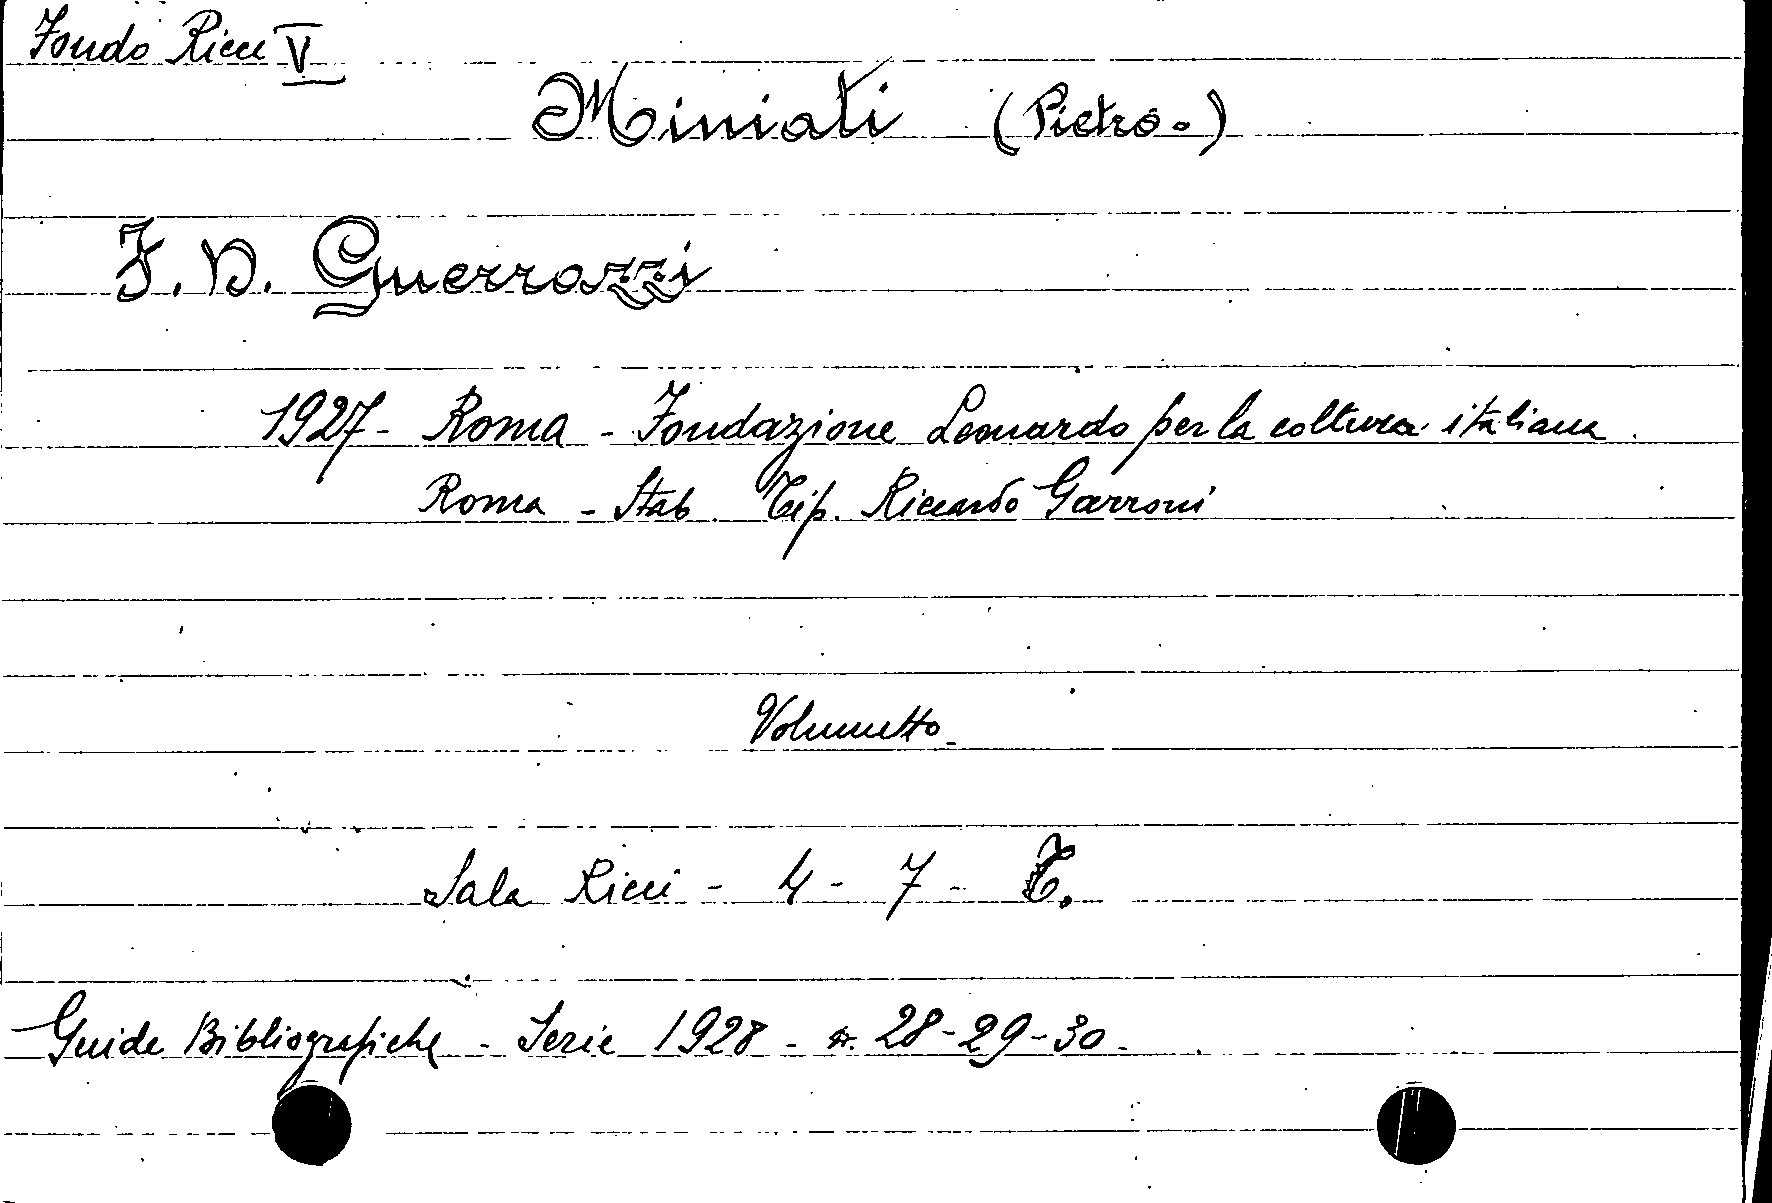 Fondo Ricci V
Miniati (Pietro-)
F. D. Guerrazzi
1927- Roma - Fondazione Leonardo per la coltura italiana.
Roma - Stab. Tip. Riccardo Garroni
Volumetto-
Sala Ricci - 4 - 7 - T.
Guide Bibliografiche - Serie 1928 - n. 28-29-30-